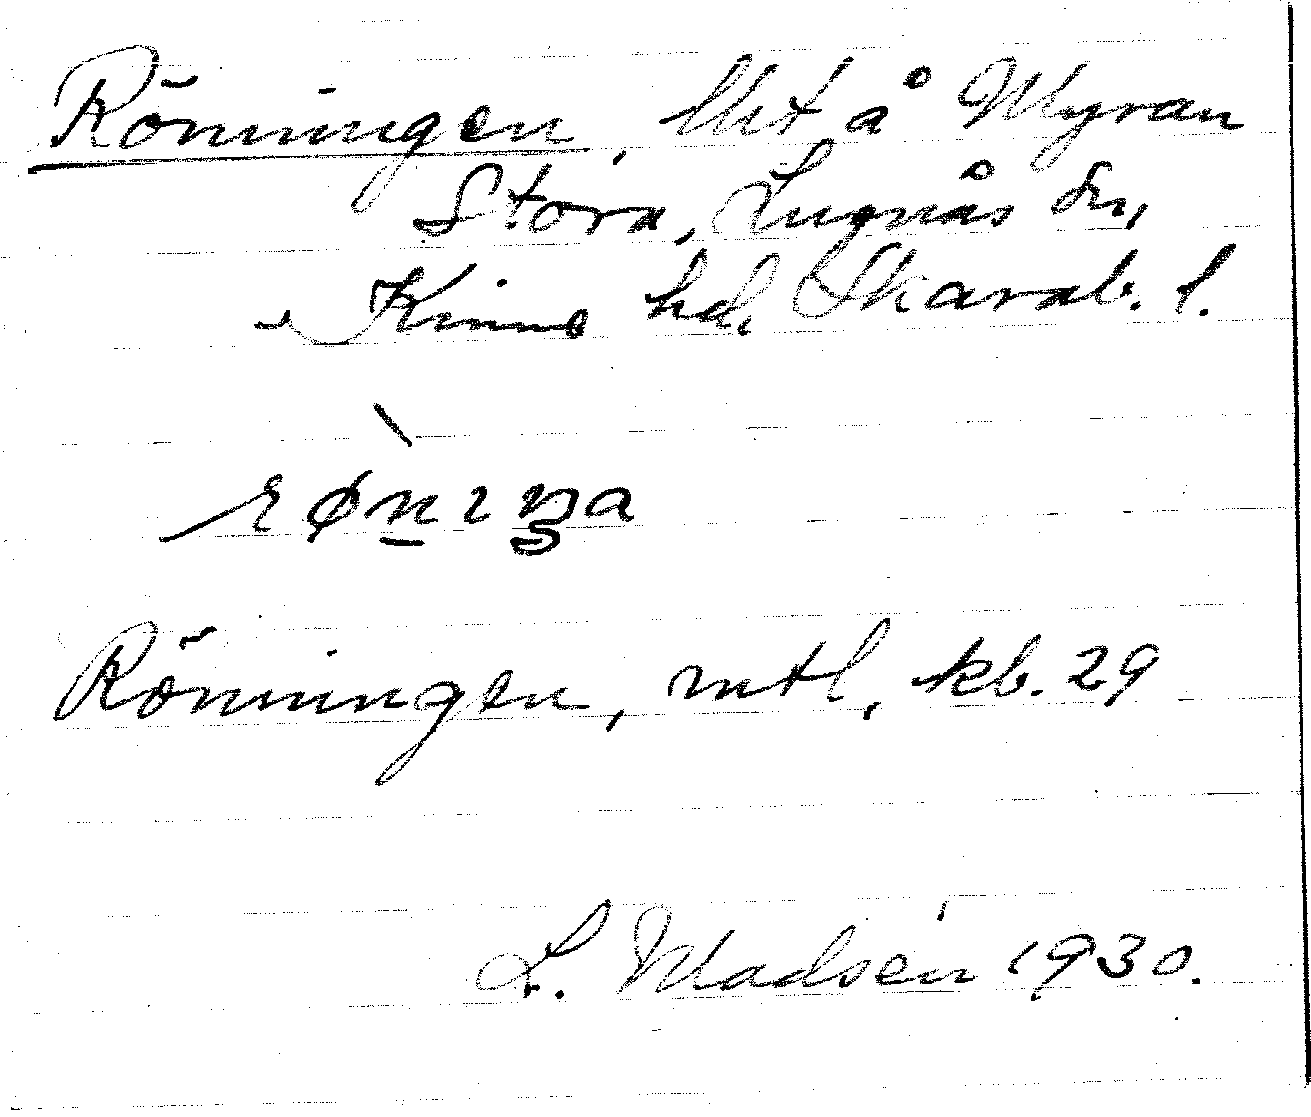 Rönningen, lht å Myran
Stora, Lugnås sn,
Kinne hd, Skarab. l.
Rönningen, mtl, kb. 29
L. Madsén 1930.